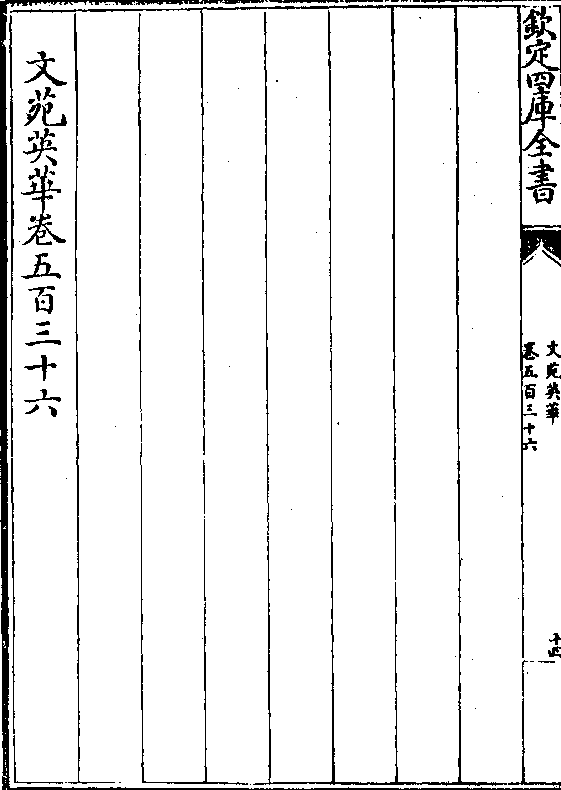 欽定四庫全書
文苑英華
卷五百三十六
十四
文苑英華卷五百三十六